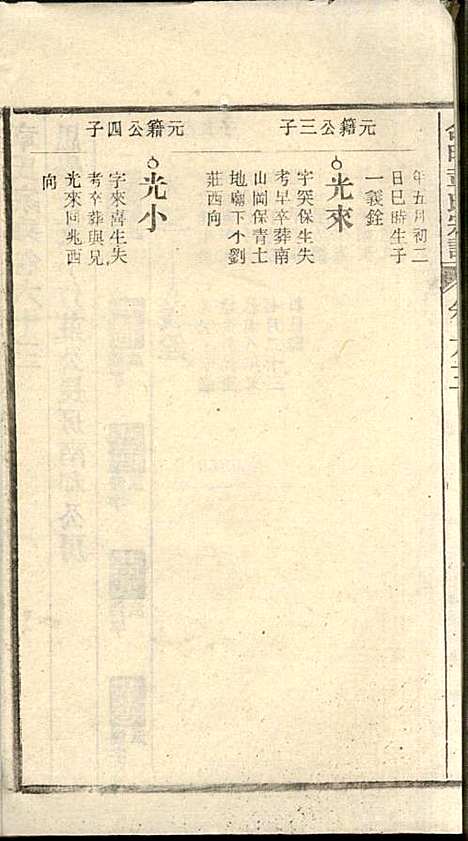 年五月初二
日巳時生子
一義銓
元籍公三子
光來
字癸保生失
考早卒葬南
山岡保青土
地廟下小劉
莊西向
元籍公四子
光小
字來喜生失
考卒葬與兄
光來同兆西
向